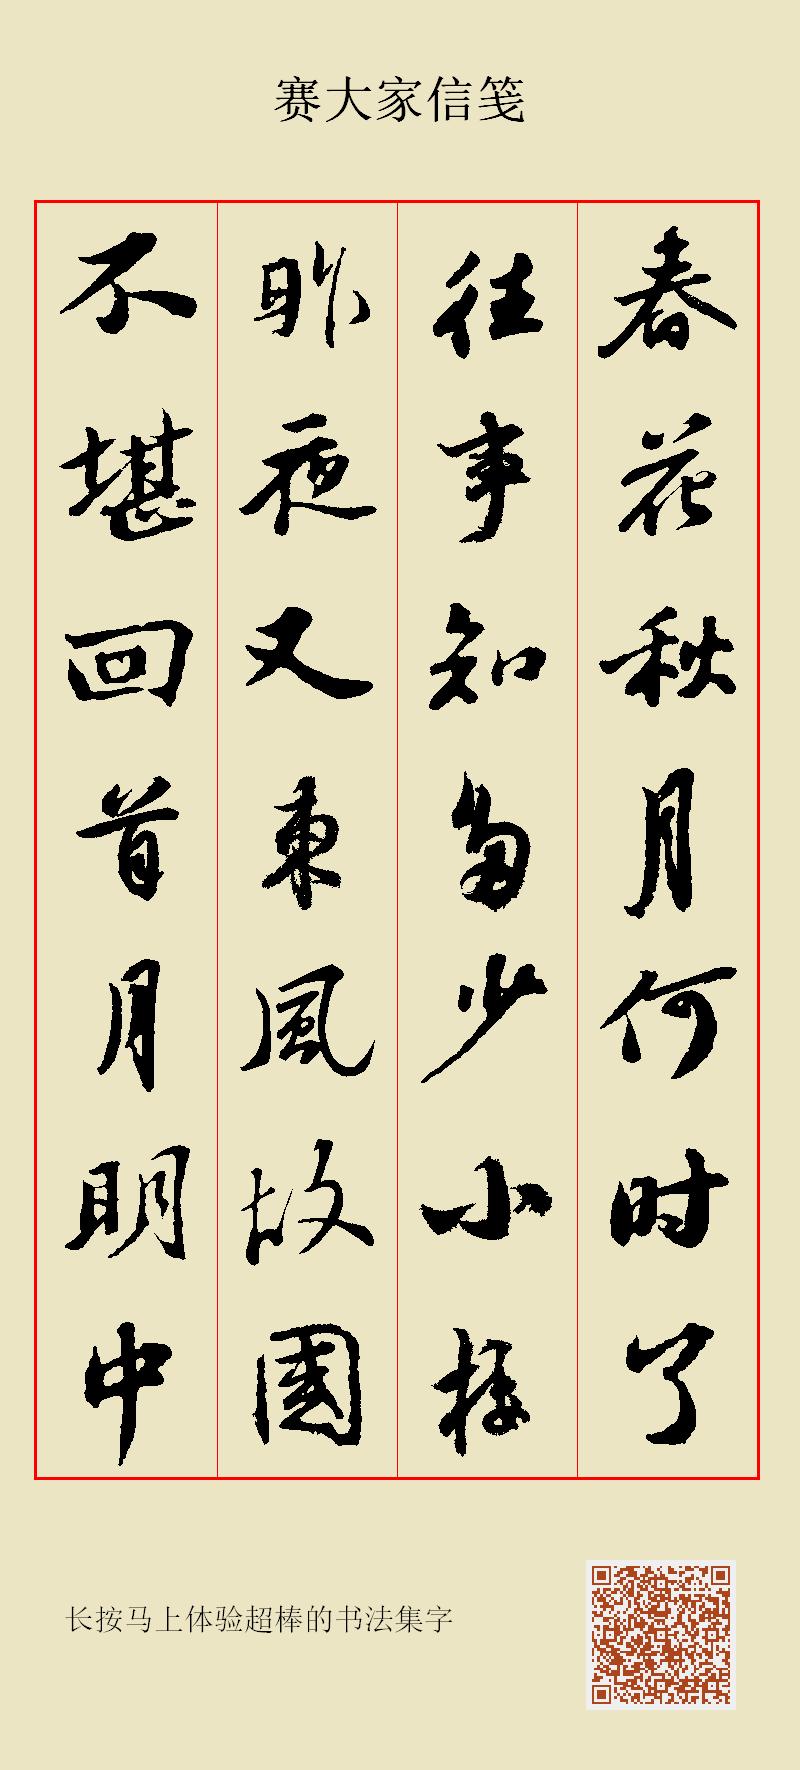 赛大家信笺
春花秋月何时了
往事知多少小楼
昨夜又東風故國
不堪回首月明中
长按马上体验超棒的书法集字